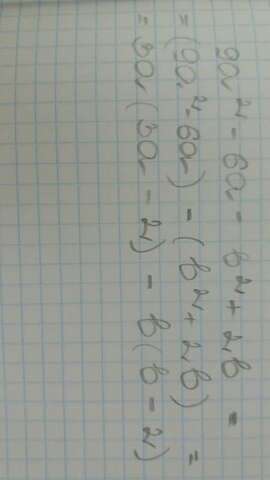 9a² - 6a - b² + 2b =
= (9a² - 6a) - (b² + 2b) =
= 3a (3a - 2) - b (b - 2)